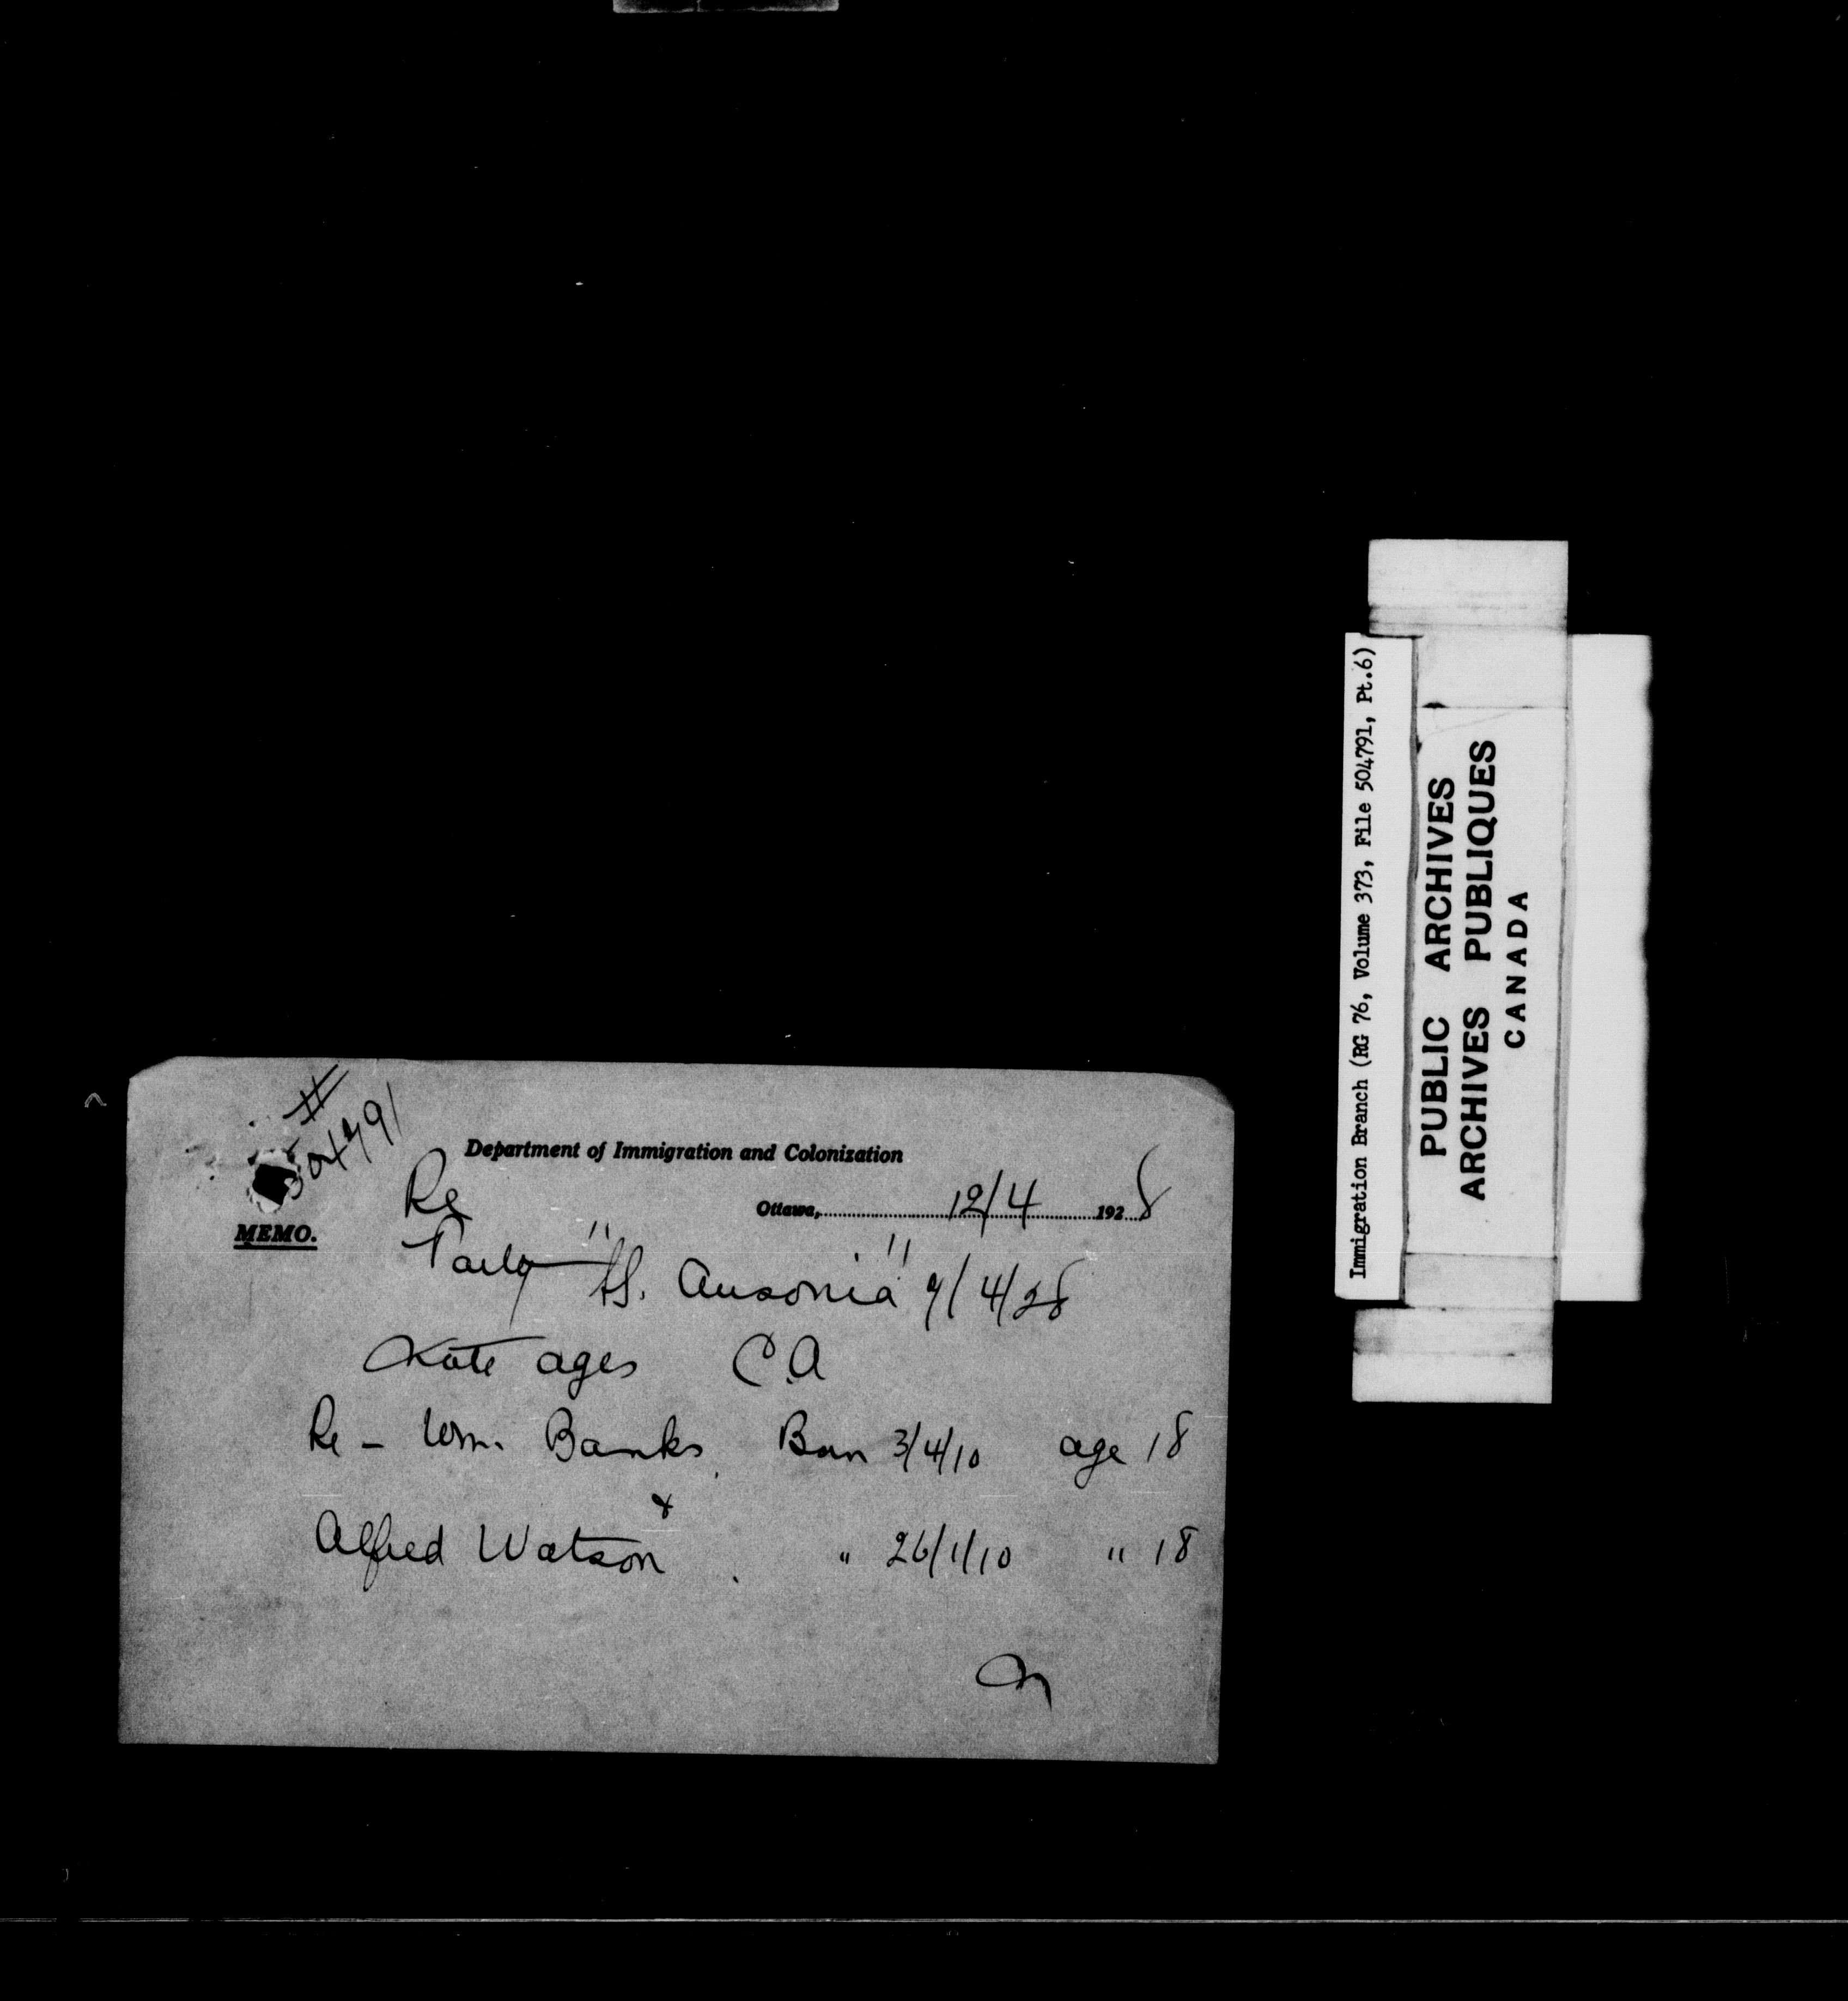 # 504791
Department of Immigration and Colonization
Ottawa, 12/4 1928
MEMO.
Re
Party "SS. Ausonia" 9/4/28
Note ages C.A
Re - Wm. Banks. Born 3/4/10 age 18
&
Alfred Watson. " 26/1/10 " 18
Immigration Branch (RG 76, Volume 373, File 504791, Pt.6)
PUBLIC ARCHIVES
ARCHIVES PUBLIQUES
CANADA